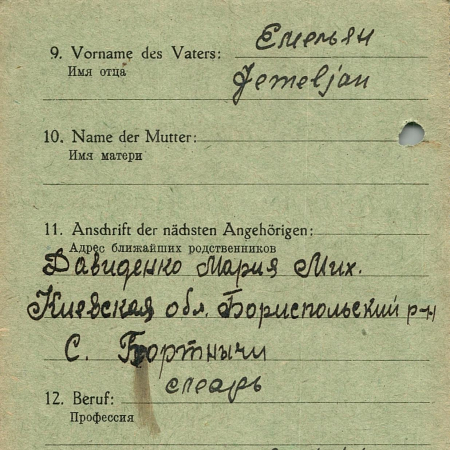 Емельян
9. Vorname des Vaters:
Имя отца
Jemeljan
10. Name der Mutter:
Имя матери
11. Anschrift der nächsten Angehörigen:
Адрес ближайших родственников
Давиденко Мария Мих.
Киевская обл. Бориспольский р-н
С. Бортничи
слесарь
12. Beruf:
Профессия